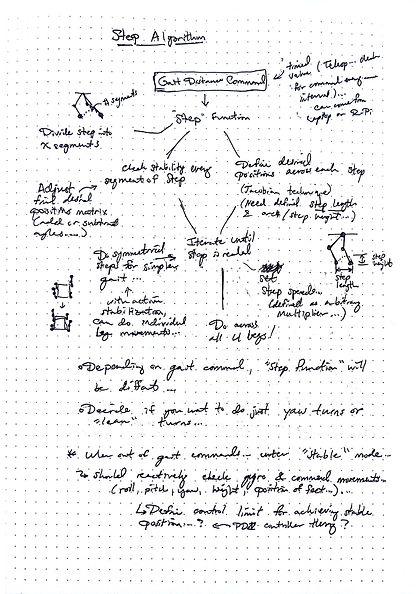 Step Algorithm
Gait Distance Command
timed
values (Teleop...
for command every
interval)...
can come from
laptop or R-Pi
# segments
"Step" Function
Divide step into
x segments
Check stability every
segment of step
Define desired
positions across each step
(Jacobian technique)
(Need define step length
& arc (step height...)
Adjust
final desired
positions matrix
(add or subtract
angles.....)
Iterate until
step is reached
Do symmetrical
steps for simpler
gait...
with action
stabilization,
can do individual
leg movements...
step
height
step
length
Set
Step speeds...
(defined as arbitrary
multiplier...)
Do across
all 4 legs!
Depending on gait command, "step function" will
be different...
Decide if you want to do just yaw turns or
"lean" turns...
* When out of gait commands... enter "stable" mode...
↳ Should reactively check gyro & command movements...
(roll, pitch, yaw, height, position of feet...)...
↳ Define control limit for achieving stable
position....? ← controller theory?